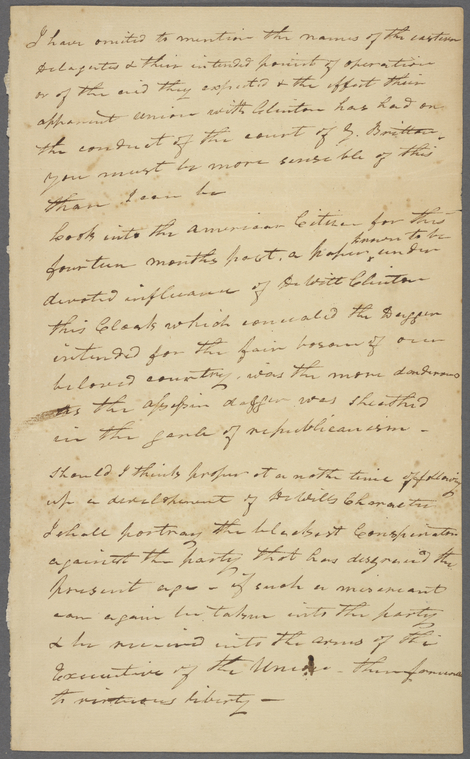 I have omited to mention the names of the eastern
Delagates & their intended point of operation
or of the end they expected & the effect their
apparent union with Clinton has had on
the conduct of the court of G. Britton.
you must be more sensible of this
than I can be
Look into the American Citizen for this
fourteen months past, a paper known to be under
devoted influance of DeWitt Clinton
this Cloak which concealed the Dagger
intended for the fair bosom of our
beloved country, was the more dangerous
as the assassin dagger was sheathed
in the garb of republicanism -
Should I think proper at a nother time of
up a development of DeWitts Character
I shall portray the blackest Conspirator
against the party that has disgraced the
present age - if such a miscreant
can again be taken into the party
& be received into the arms of the
Executive of the Union - then farewell
to virtuous liberty -